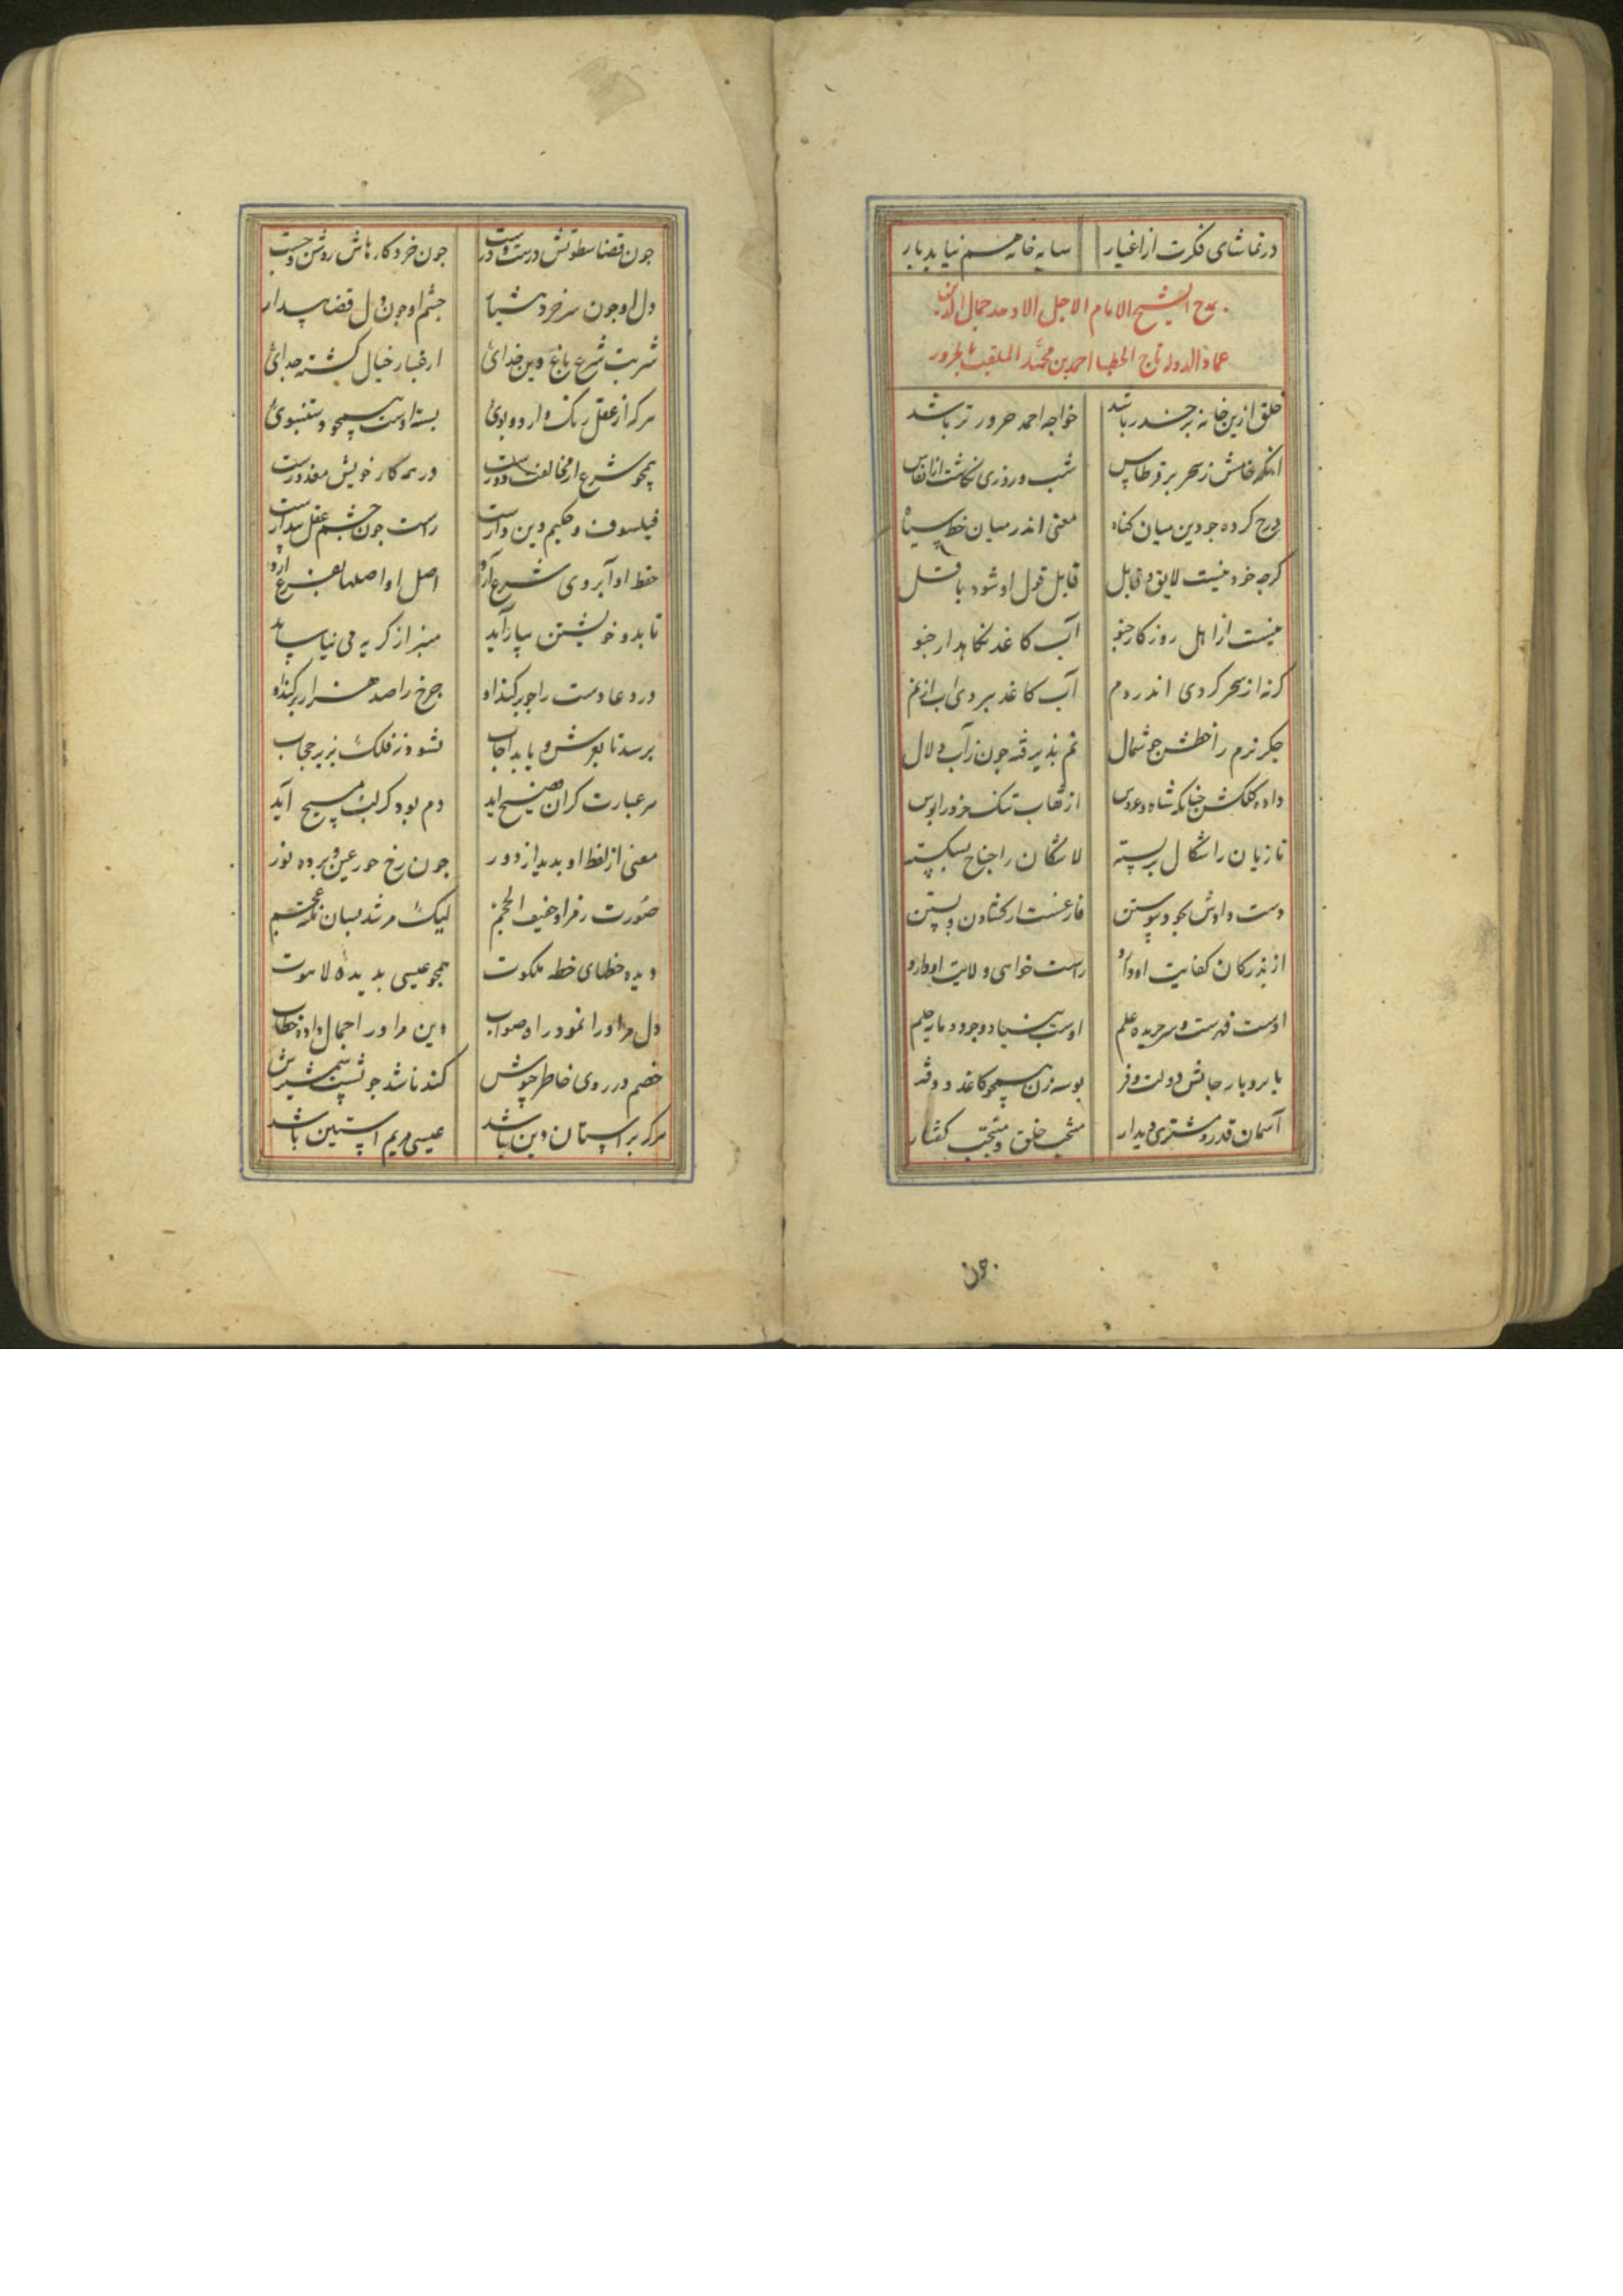 در تماشای فکرت از اغیار سایه خانه هم نیاید بار
مدح الشیخ الامام الاجل الاوحد جمال الدین
عماد الدوله تاج الخطبا احمد بن محمد الملقب بالحرور
خلق ازین خانه برحذر باشد خواجه احمد حرور تر باشد
انکه خامش ز سحر بر قرطاس شب و روزی نکاشت از انفاس
درج کرده جو دین میان کناه معنی اندر میان خط سیاه
کرجه خود نیست لایق و قابل قابل قول او شود باقل
نیست از اهل روزکار جنو آب کاغذ نکاهدار جنو
کرنه از سحر کردی اندر دم آب کاغذ ببردی آب از نم
جکر نرم را خطش جو شمال نم بذیرفته جون ز آب زلال
داده کلکش جنانکه شاه و عروس از نقاب تنک
تازیان را شکال بربسته لاشکان را جناح بشکسته
دست دادش بجود پیوستن فارغست از کشادن و بستن
از بذر کان کفایت او دارد راست خواهی ولایت او دارد
اوست فهرست و سر جریده علم اوست بنیاد وجود و مایه حلم
با بر و بار جانش دولت و فر بوسه زن همجو کاغذ و دفتر
آسمان قدر و مشتری دیدار منتخب خلق و منتجب کفتار
۵۹۰
جون قضا سطوتش درست و درست جون خرد کارهاش روشن و جست
دل او جون سر خرد هشیار جشم او جون دل قضا بیدار
شربت شرع باغ دین خدای از غبار خیال کشته جدای
هرکه از عقل رنک دارد و بوی بسته اوست همجو دستنبوی
همجو شرع از مخالفت دورست در همه کار خویش معذورست
فیلسوف و حکیم دین دارست راست جون جشم عقل بیدارست
حفظ او آبروی شرع آرد اصل او اصلها بفرع آرد
تا بدو خویشتن بیاراید منبر از کریه می نیاساید
در دعا دست را جو برکند او جرخ را صد هزار برکند او
برسد تا بعرش و یابد اجاب نشود نه فلک بزیر حجاب
هر عبارت کزان فصیح آید دم بود کز لب مسیح آید
معنی از لفظ او بدید از دور جون رخ حور عین و برده نور
صورت رفرا و خفیف الحجم لیک مرشد بسان نکته نجم
دیده خطهای خطه ملکوت همجو عیسی بدیده لاهوت
دل مر او را نمود راه صواب دین مر او را جمال داده خطاب
خصم در روی خاطر جوشش کند باشد جو بشت شمشیرش
هرکه بر آستان دین باشد عیسی مریم آستین باشد